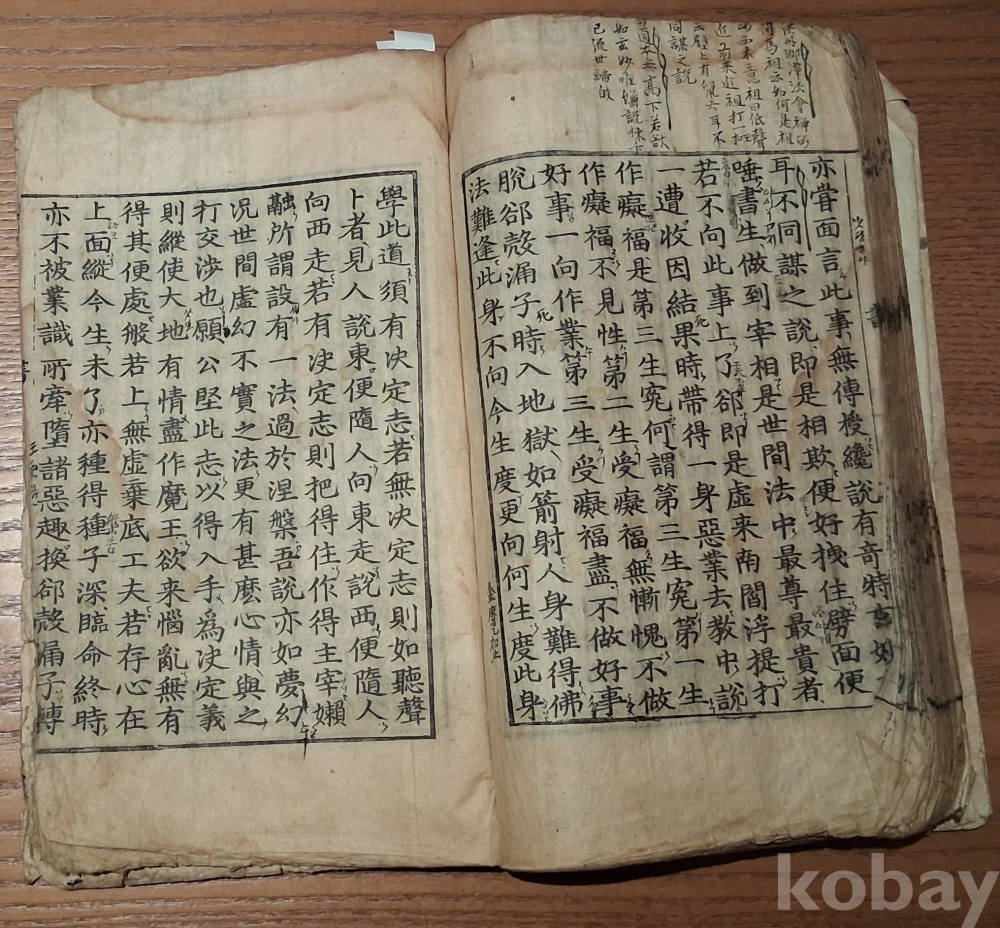 洪州泐潭法會禪師
問馬祖云如何是祖
西來意祖曰低聲
近前来近祖打一摑
云壁上有六耳不
同謀之說
道本無高下若
如玄妙唯說
已流世諦故
亦甞面言此事無傳授纔說有奇特玄妙
耳不同謀之說即是相欺便好拽住劈面便
唾書生做到宰相是世間法中最尊最貴者
若不向此事上了郤即是虛来南閻浮提打
一遭收因結果時帶得一身惡業去教中說
作癡福是第三生寃何謂第三生寃第一生
作癡福不見性第二生受癡福無慚愧不做
好事一向作業第三生受癡福盡不做好事
脫郤殼漏子時入地獄如箭射人身難得佛
法難逢此身不向今生度更向何生度此身
學此道須有决定志若無决定志則如聽聲
卜者見人說東便隨人向東走說西便隨人
向西走若有决定志則把得住作得主宰嬾
融所謂設有一法過於涅槃吾說亦如夢幻
况世間虛幻不實之法更有甚麽心情與之
打交涉也願公堅此志以得入手爲决定義
則縱使大地有情盡作魔王欲来惱亂無有
得其便處般若上無虛棄底工夫若存心在
上面縱今生未了亦種得種子深臨命終時
亦不被業識所牽墮諸惡趣換郤殼漏子轉
kobay